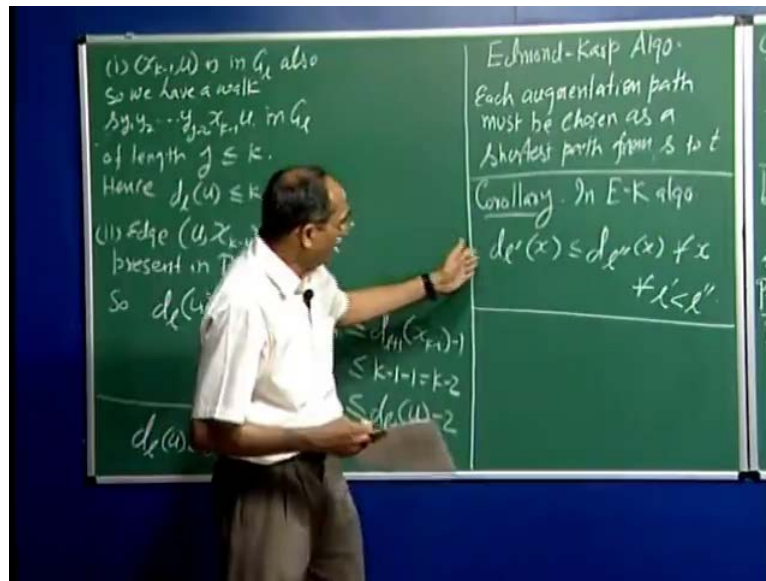 (i) (x_{k-1}, u) is in G_l also
So we have a walk
s y_1 y_2 ... y_{j-2} x_{k-1} u in G_l
of length j ≤ k.
Hence d_l(u) ≤ k
(ii) Edge (u, x_{k-1})
present in
So d_l(u)
≤ d_{l+1}(x_{k-1}) - 1
≤ k-1-1 = k-2
≤ d_{l+1}(u) - 2
d_l(u)
Edmond-Karp Algo.
Each augmentation path
must be chosen as a
shortest path from s to t
Corollary. In E-K algo
d_{l'}(x) ≤ d_{l''}(x) ∀ x
∀ l' < l''.